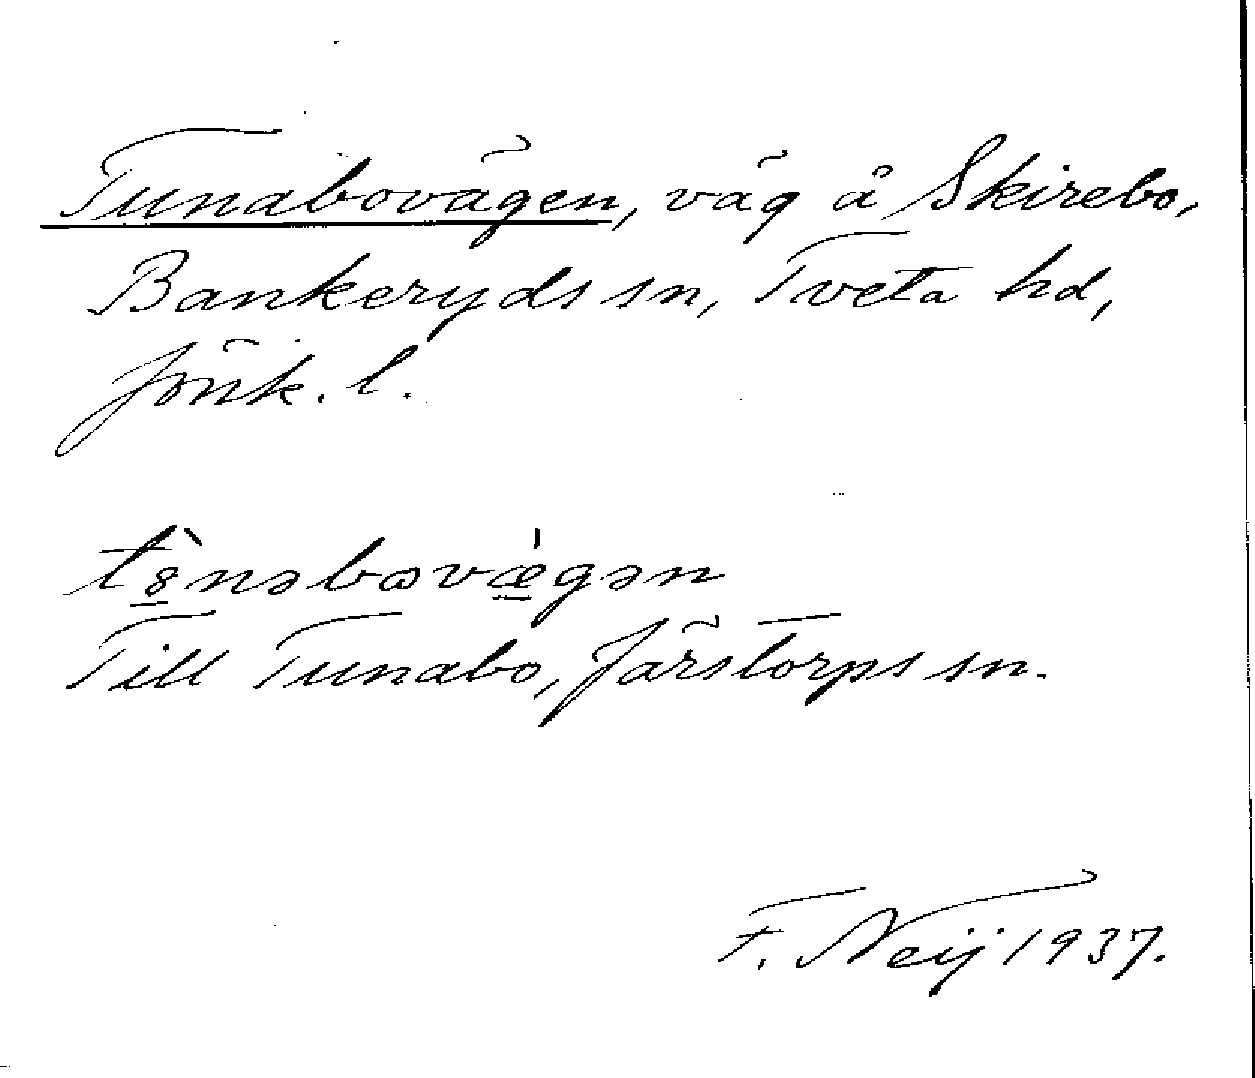 Tunabovägen, väg å Skirebo,
Bankeryds sn, Tveta hd,
Jönk. l.
tȣ̀nəbωvǽgən
Till Tunabo, Järstorps sn.
F. Neij 1937.